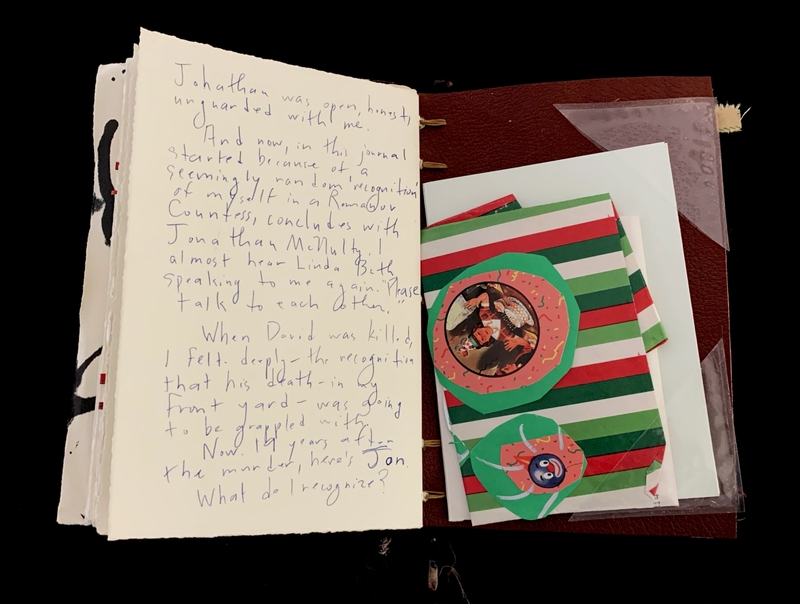 Johathan was open, honest,
unguarded with me.
And now, in this journal
started because of a
seemingly random 'recognition'
of myself in a Romanov
Countess, concludes with
Jonathan McNulty. I
almost hear Linda Beth
speaking to me again. "Please
talk to each other."
When David was killed,
I felt deeply - the recognition
that his death - in my
front yard - was going
to be grappled with.
Now. 19 years after
the murder, here's Jon.
What do I recognize?